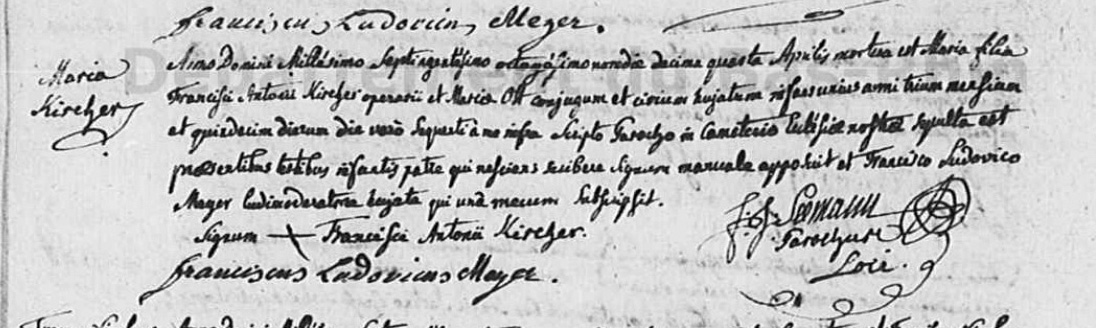 Franciscus Ludovicus Meyer.
Maria
Kircher
Anno Domini Millesimo Septingentesimo octogesimo nono die decima quarta Aprilis mortua est Maria filia
Francisci Antonii Kircher operarii et Mariæ Ott conjugum et civium hujatum infans unius anni trium mensium
et quindecim dierum die vero sequenti à me infra scripto Parocho in Cæmeterio Ecclesiæ nostræ sepulta est
præsentibus testibus infantis patre qui nesciens scribere signum manuale apposuit et Francisco Ludovico
Meyer ludimoderatore hujate qui unà mecum subscripsit.
Signum + Francisci Antonii Kircher.
Franciscus Ludovicus Meyer.
Parochus
Loci.